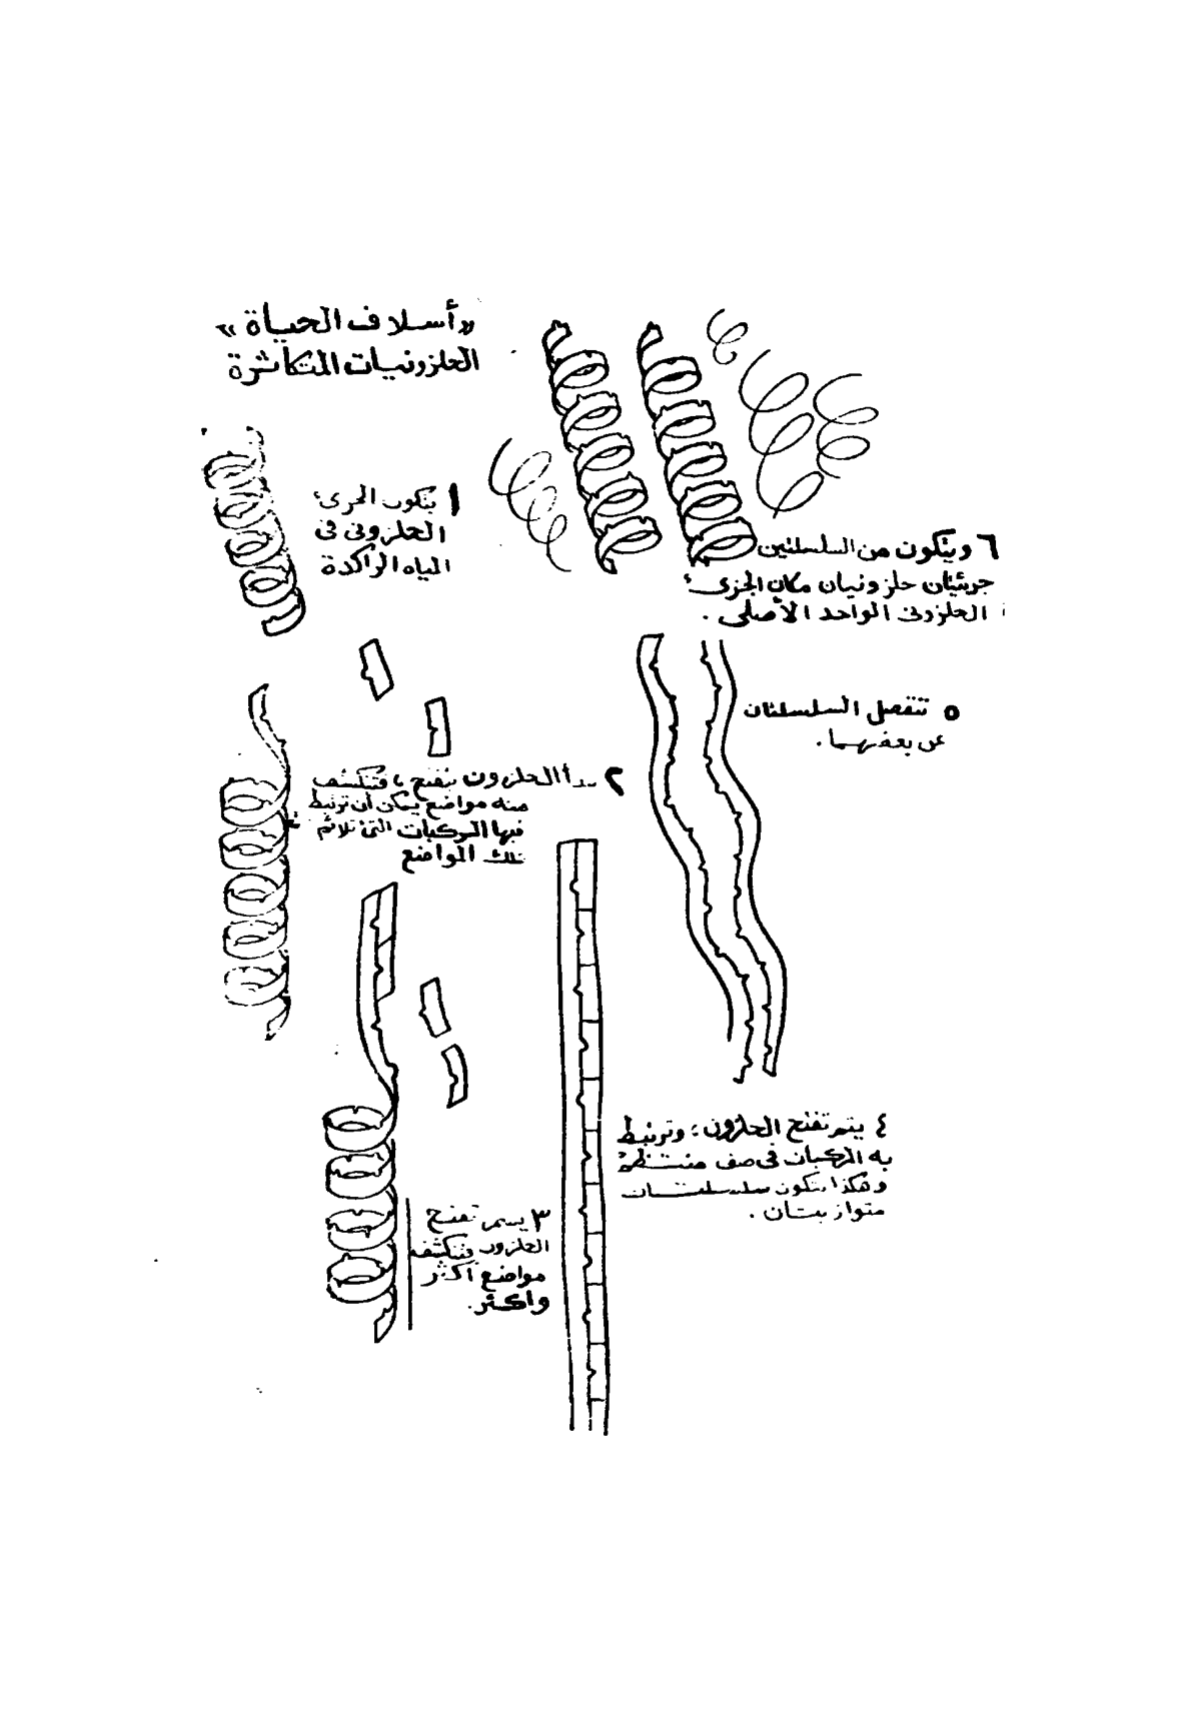 «أسلاف الحياة»
الحلزونيات المتكاثرة
١ يتكون الجزىء
الحلزونى فى
المياه الراكدة
٢ يبدأ الحلزون يتفتح، فتنكشف
منه مواضع يمكن أن ترتبط
فيها المركبات التى تلائم
تلك المواضع
٣ يستمر تفتح
الحلزون فتنكشف
مواضع أكثر
وأكثر.
٤ يتم تفتح الحلزون؛ وترتبط
به المركبات فى صف منتظم
وهكذا تتكون سلسلتان
متوازيتان.
٥ تنفصل السلسلتان
عن بعضهما.
٦ ويتكون من السلسلتين
جزيئان حلزونيان مكان الجزىء
الحلزونى الواحد الأصلى.